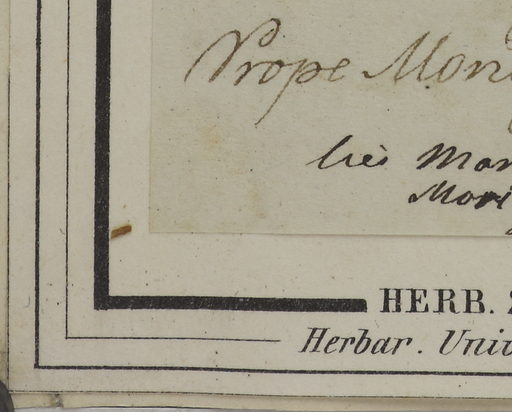 Prope Mon
Mori
HERB.
Herbar. Univ